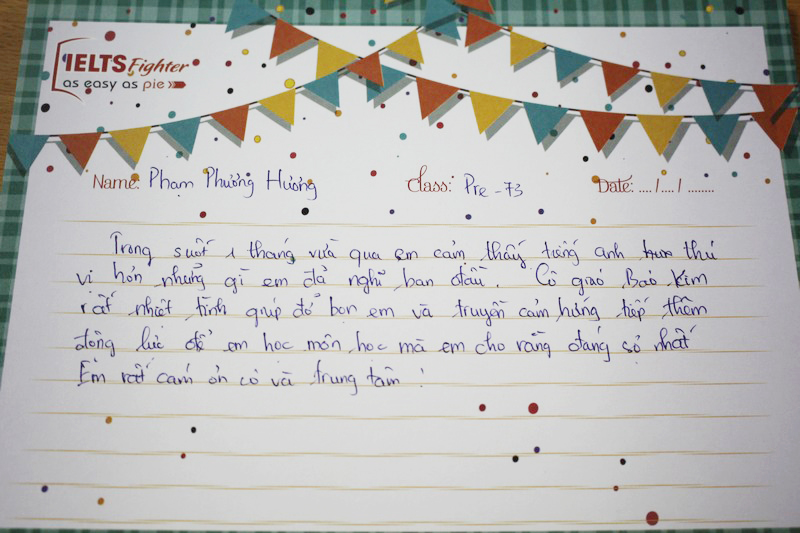 IELTS Fighter
as easy as pie
Name: Phạm Phương Hương Class: Pre - 73 Date: ..../..../........
Trong suốt 1 tháng vừa qua em cảm thấy tiếng anh thú
vị hơn những gì em đã nghĩ ban đầu. Cô giáo Bảo Kim
rất nhiệt tình giúp đỡ bọn em và truyền cảm hứng tiếp thêm
động lực để em học môn học mà em cho rằng đáng sợ nhất
Em rất cảm ơn cô và trung tâm !